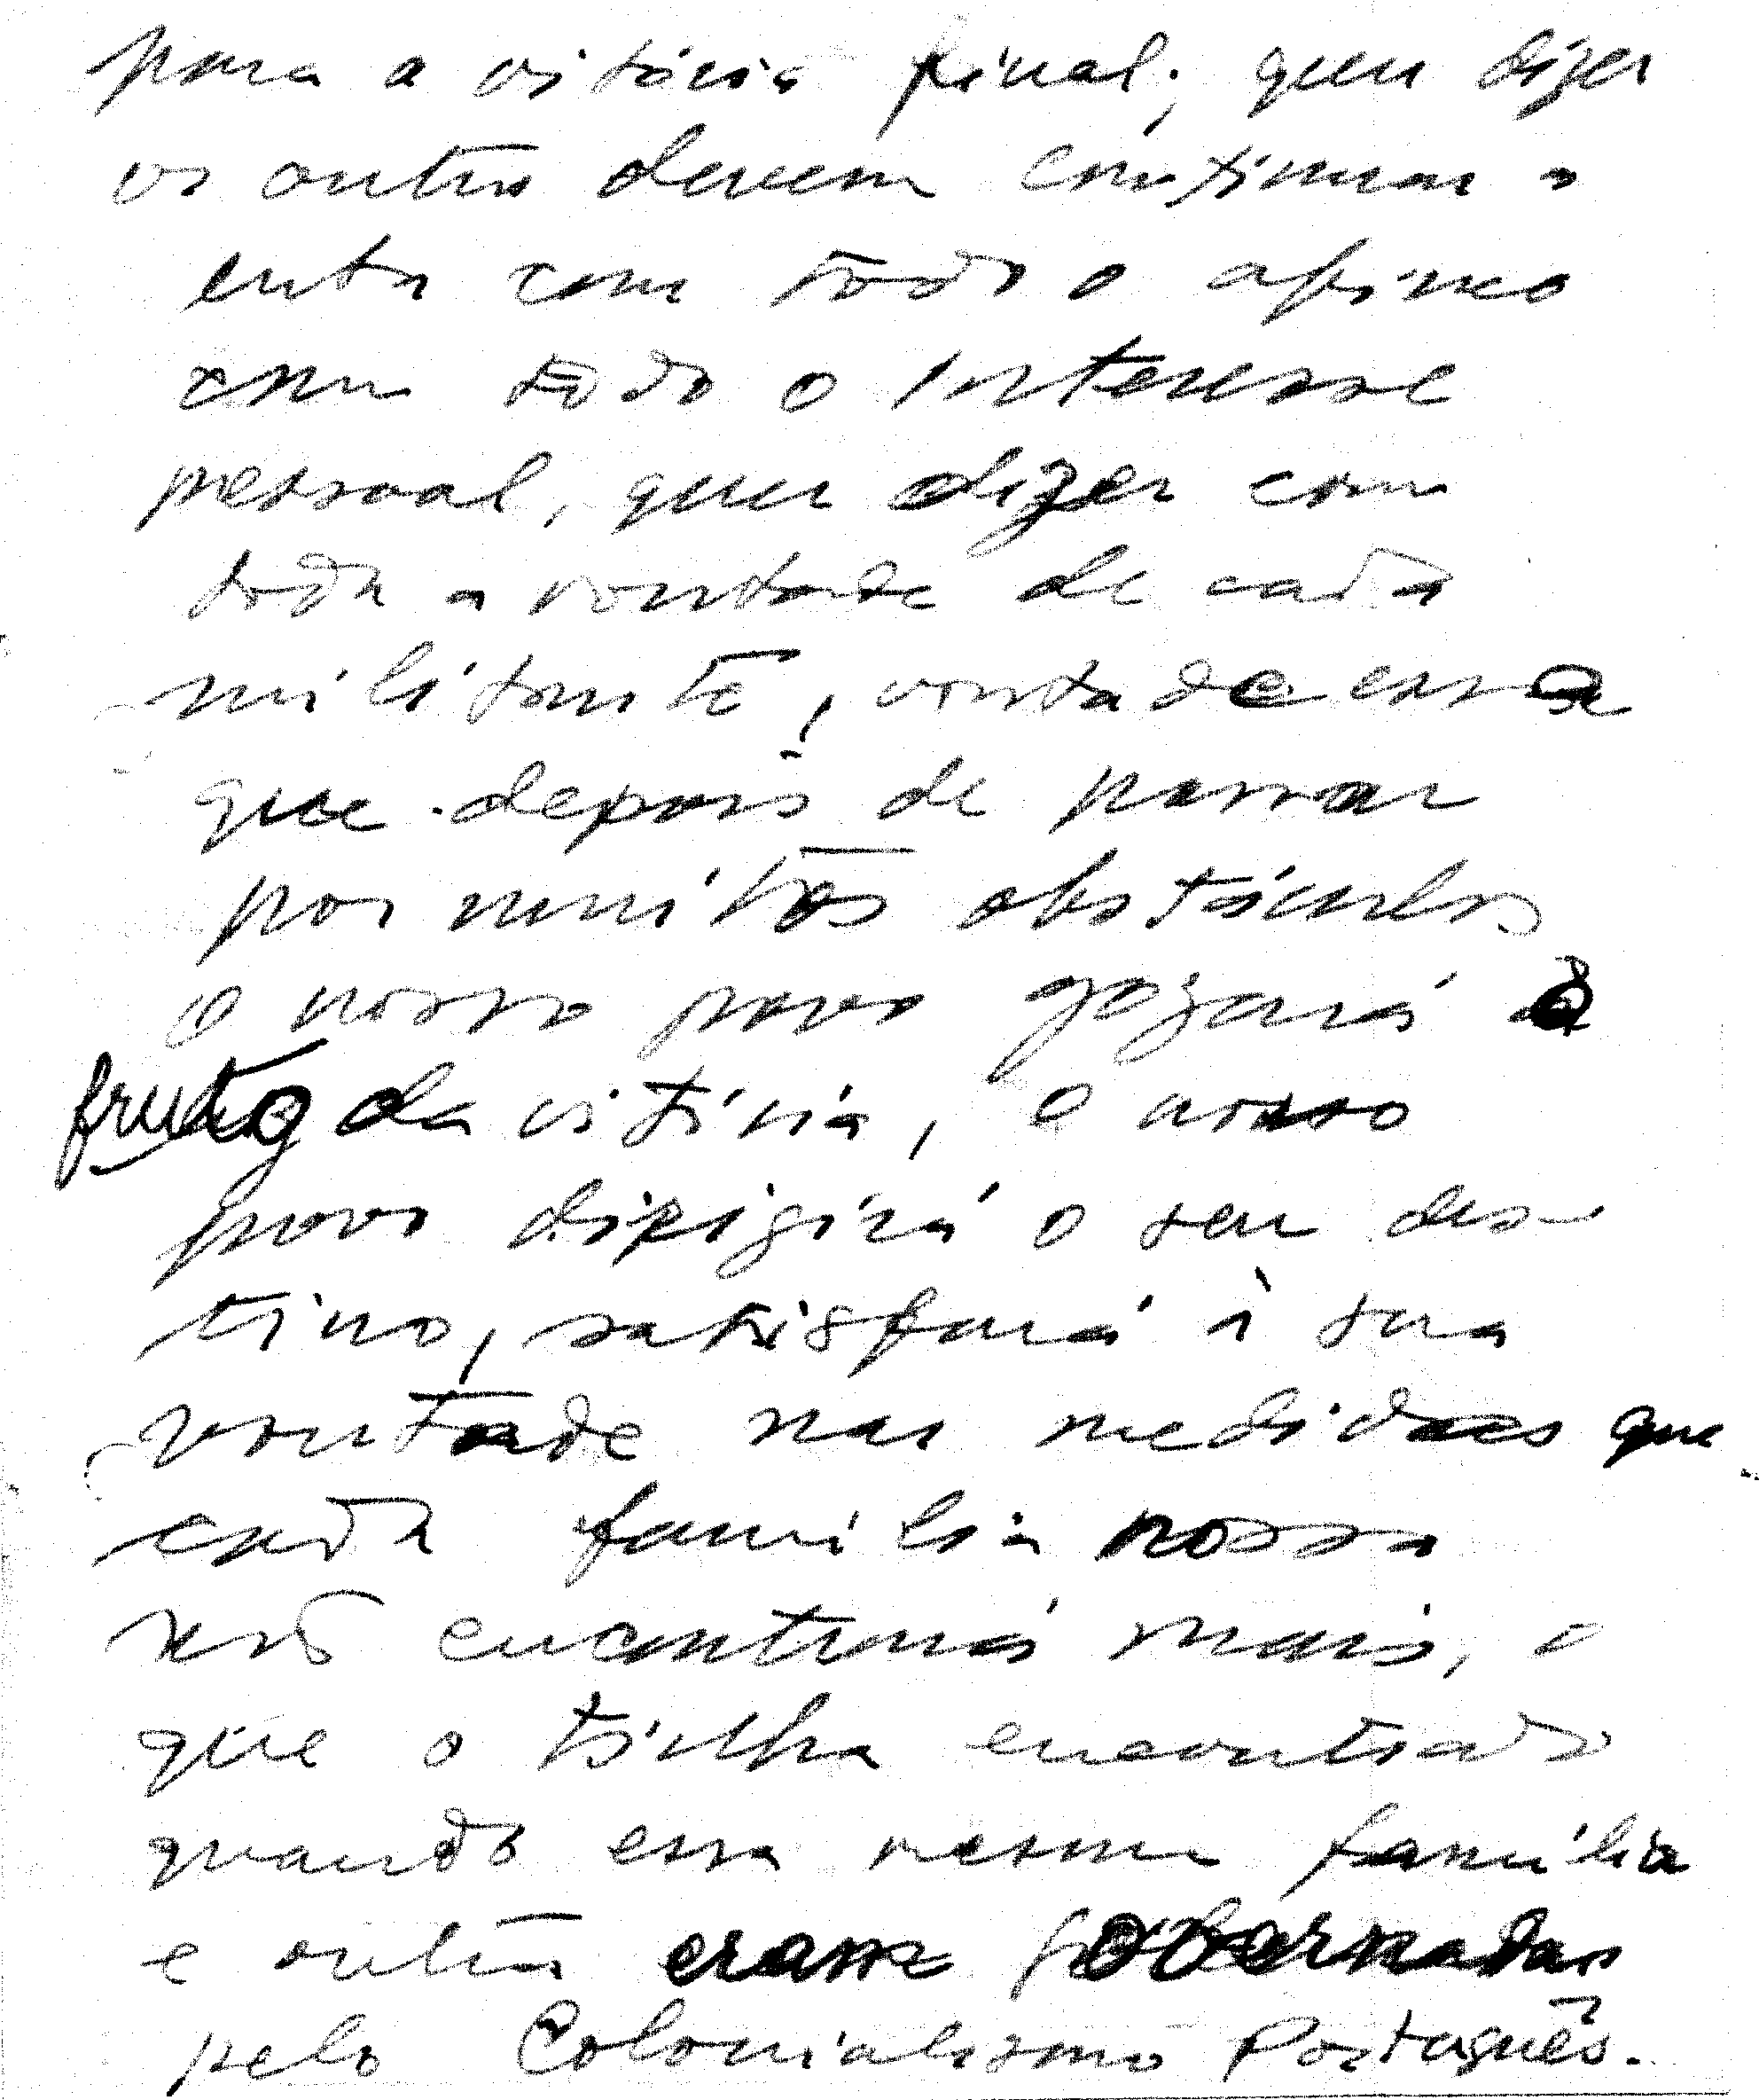 para a vitória final; quer dizer
os outros devem continuar a
luta com todo o afinco
com todo o interesse
pessoal, quer dizer com
toda a vontade de cada
militante, vontade essa
que depois de passar
por muitos obstáculos
o nosso povo gozará o
fruto da vitória, o nosso
povo dirigirá o seu des-
tino, satisfará à sua
vontade nas medidas que
cada família nossa
não encontrará mais, o
que o tinha encontrado
quando essa mesma família
e outras eram governadas
pelo Colonialismo Português.